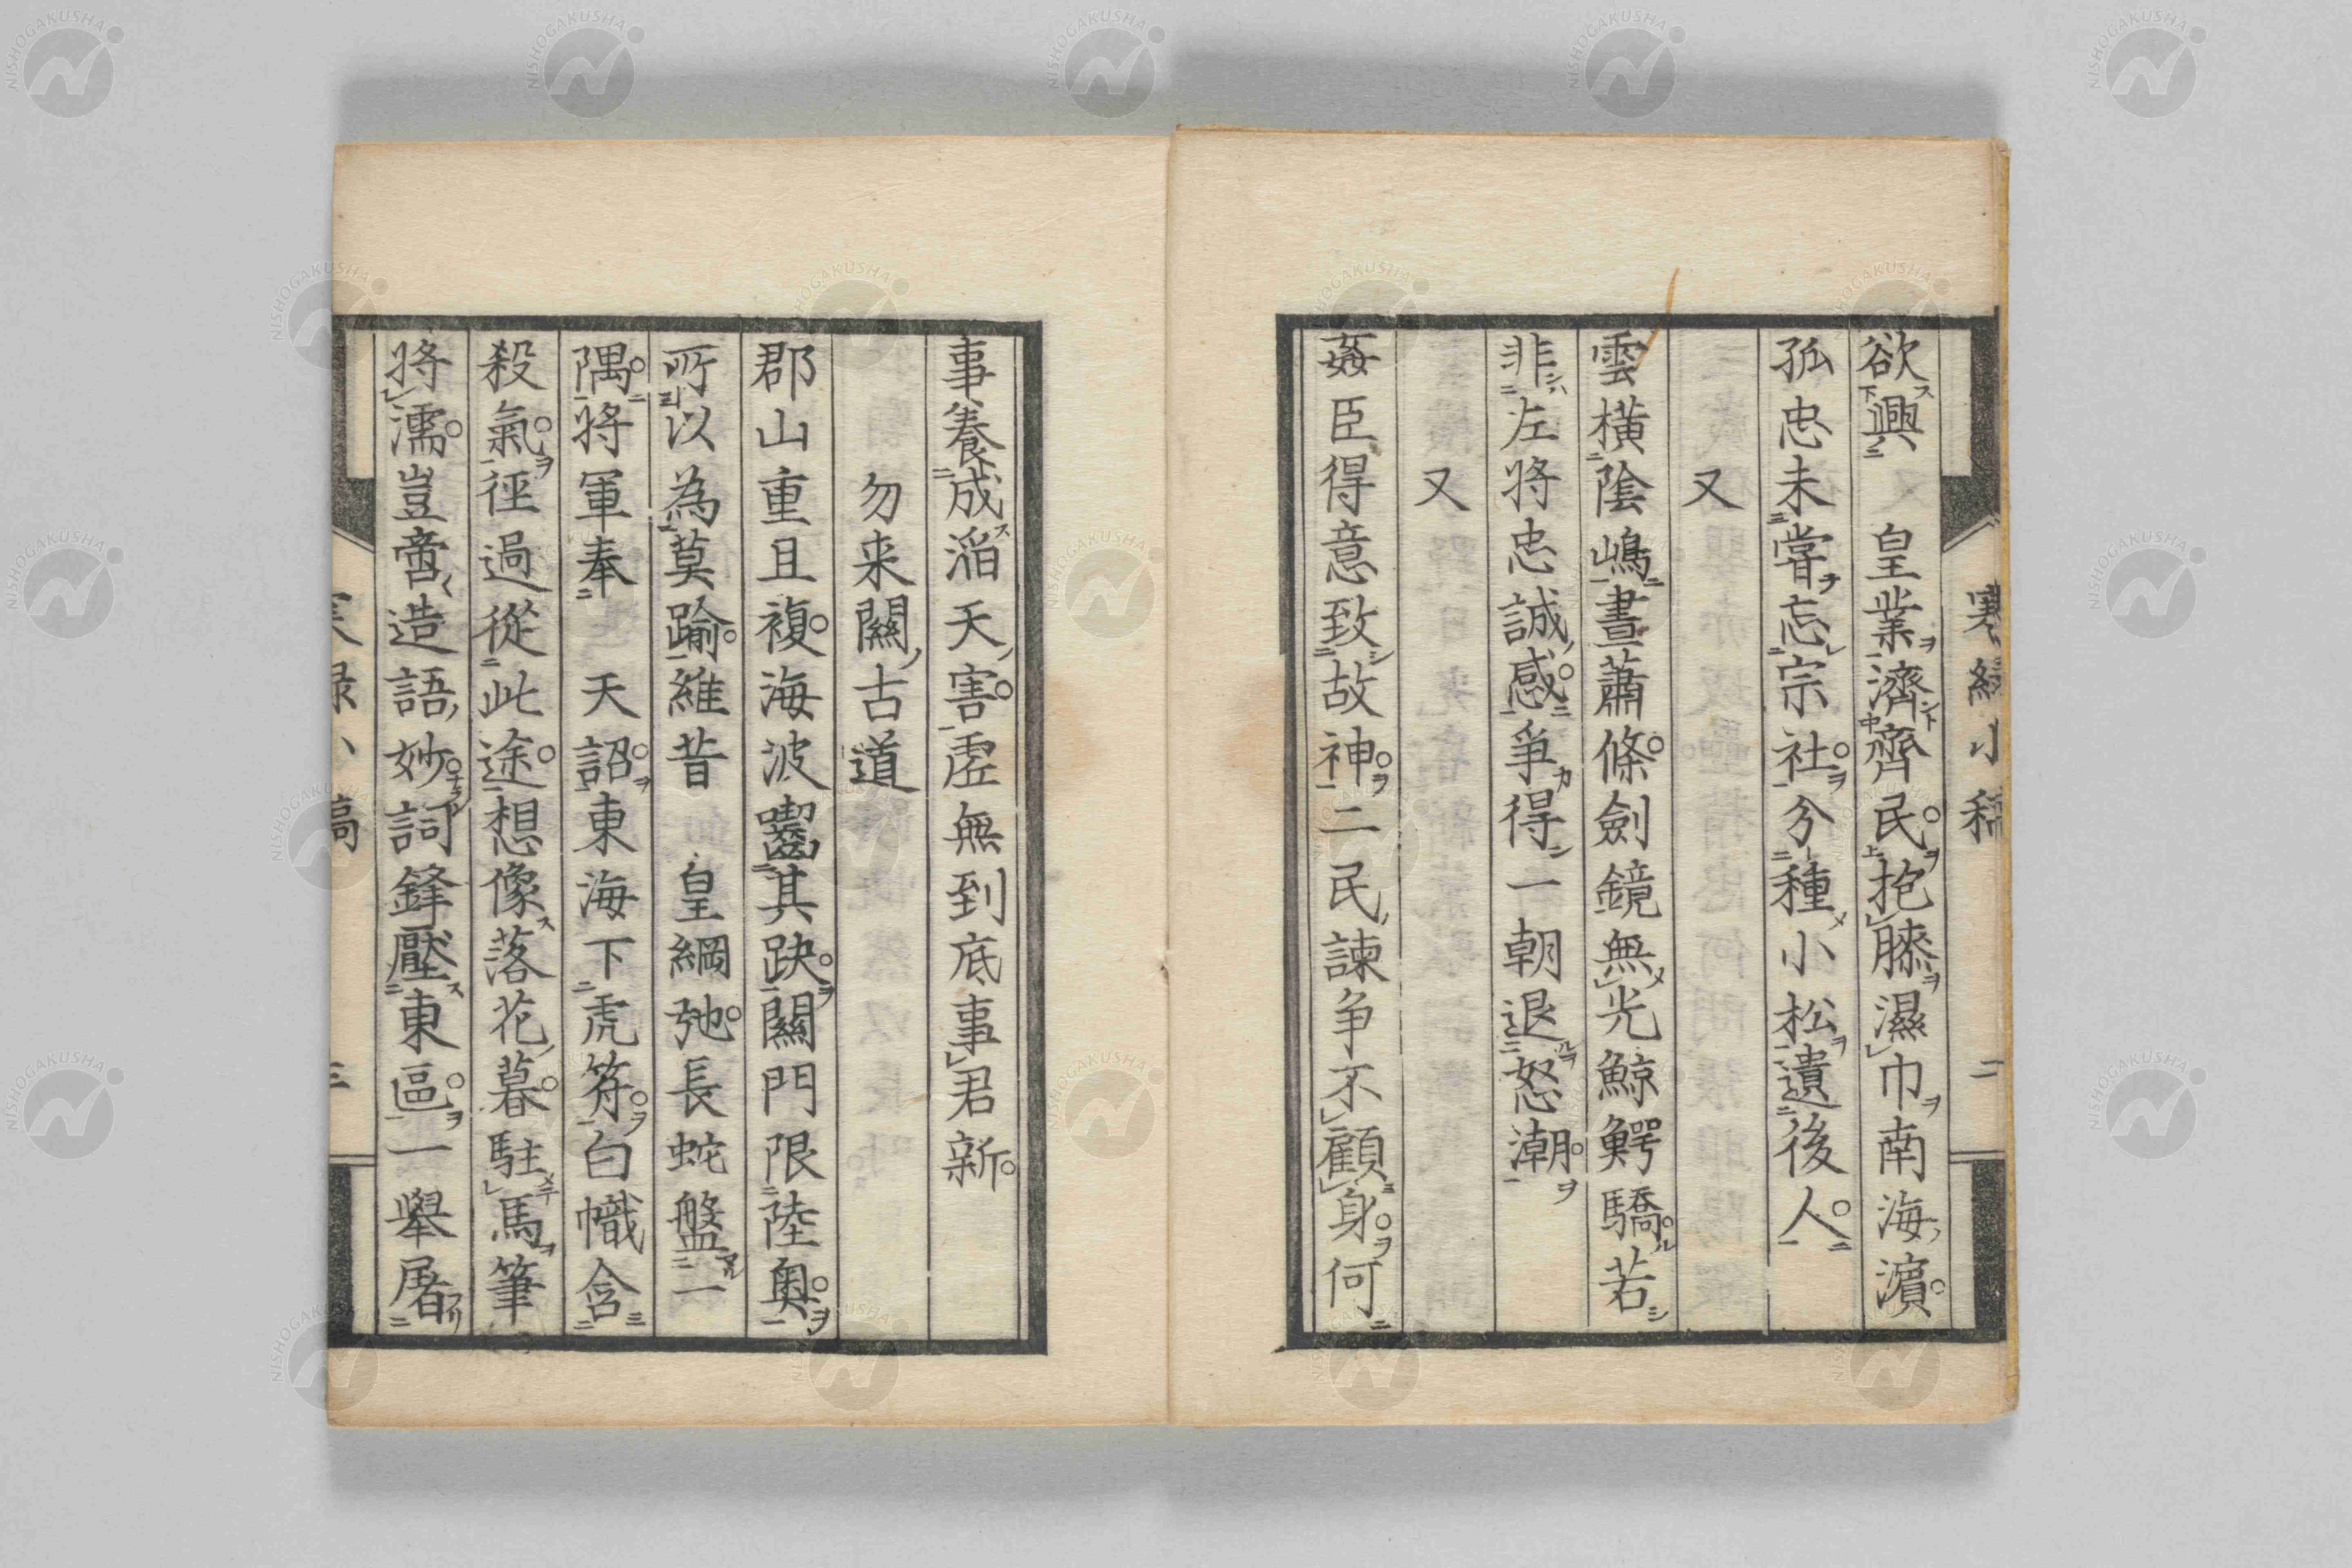 欲興　皇業濟齊民抱膝濕巾南海濱
孤忠未嘗忘宗社分種小松遺後人
又
雲橫陰嶋晝蕭條劍鏡無光鯨鰐驕若
非左將忠誠感爭得一朝退怒潮
又
姦臣得意致故神二民諫争不顧身何
事養成滔天害虛無到底事君新
勿来關古道
郡山重且複海波齧其趺關門限陸奧
所以為莫踰維昔　皇綱弛長蛇盤一
隅將軍奉　天詔東海下虎符白幟含
殺氣徑過從此途想像落花暮駐馬筆
將濡豈啻造語妙詞鋒壓東區一舉屠
寒綠小稿
二
三
NISHOGAKUSHA